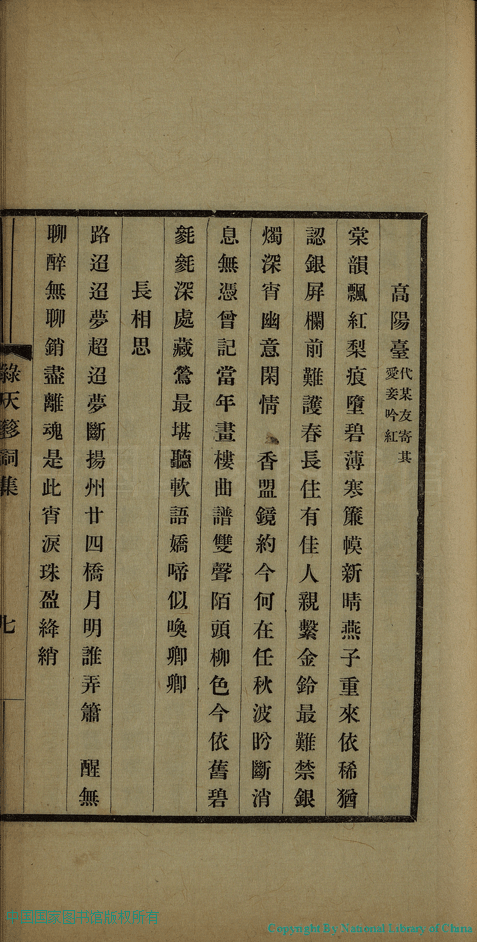 高陽臺 代某友寄其
愛妾吟紅
棠韻飄紅梨痕墮碧薄寒簾幙新晴燕子重來依稀猶
認銀屏欄前難護春長住有佳人親繫金鈴最難禁銀
燭深宵幽意閑情 香盟鏡約今何在任秋波盻斷消
息無憑曾記當年畫樓曲譜雙聲陌頭柳色今依舊碧
毿毿深處藏鶯最堪聽軟語嬌啼似喚卿卿
長相思
路迢迢夢超迢夢斷揚州廿四橋月明誰弄簫 醒無
聊醉無聊銷盡離魂是此宵淚珠盈絳綃
綠天簃詞集
七
中国国家图书馆版权所有
Copyright By National Library of China